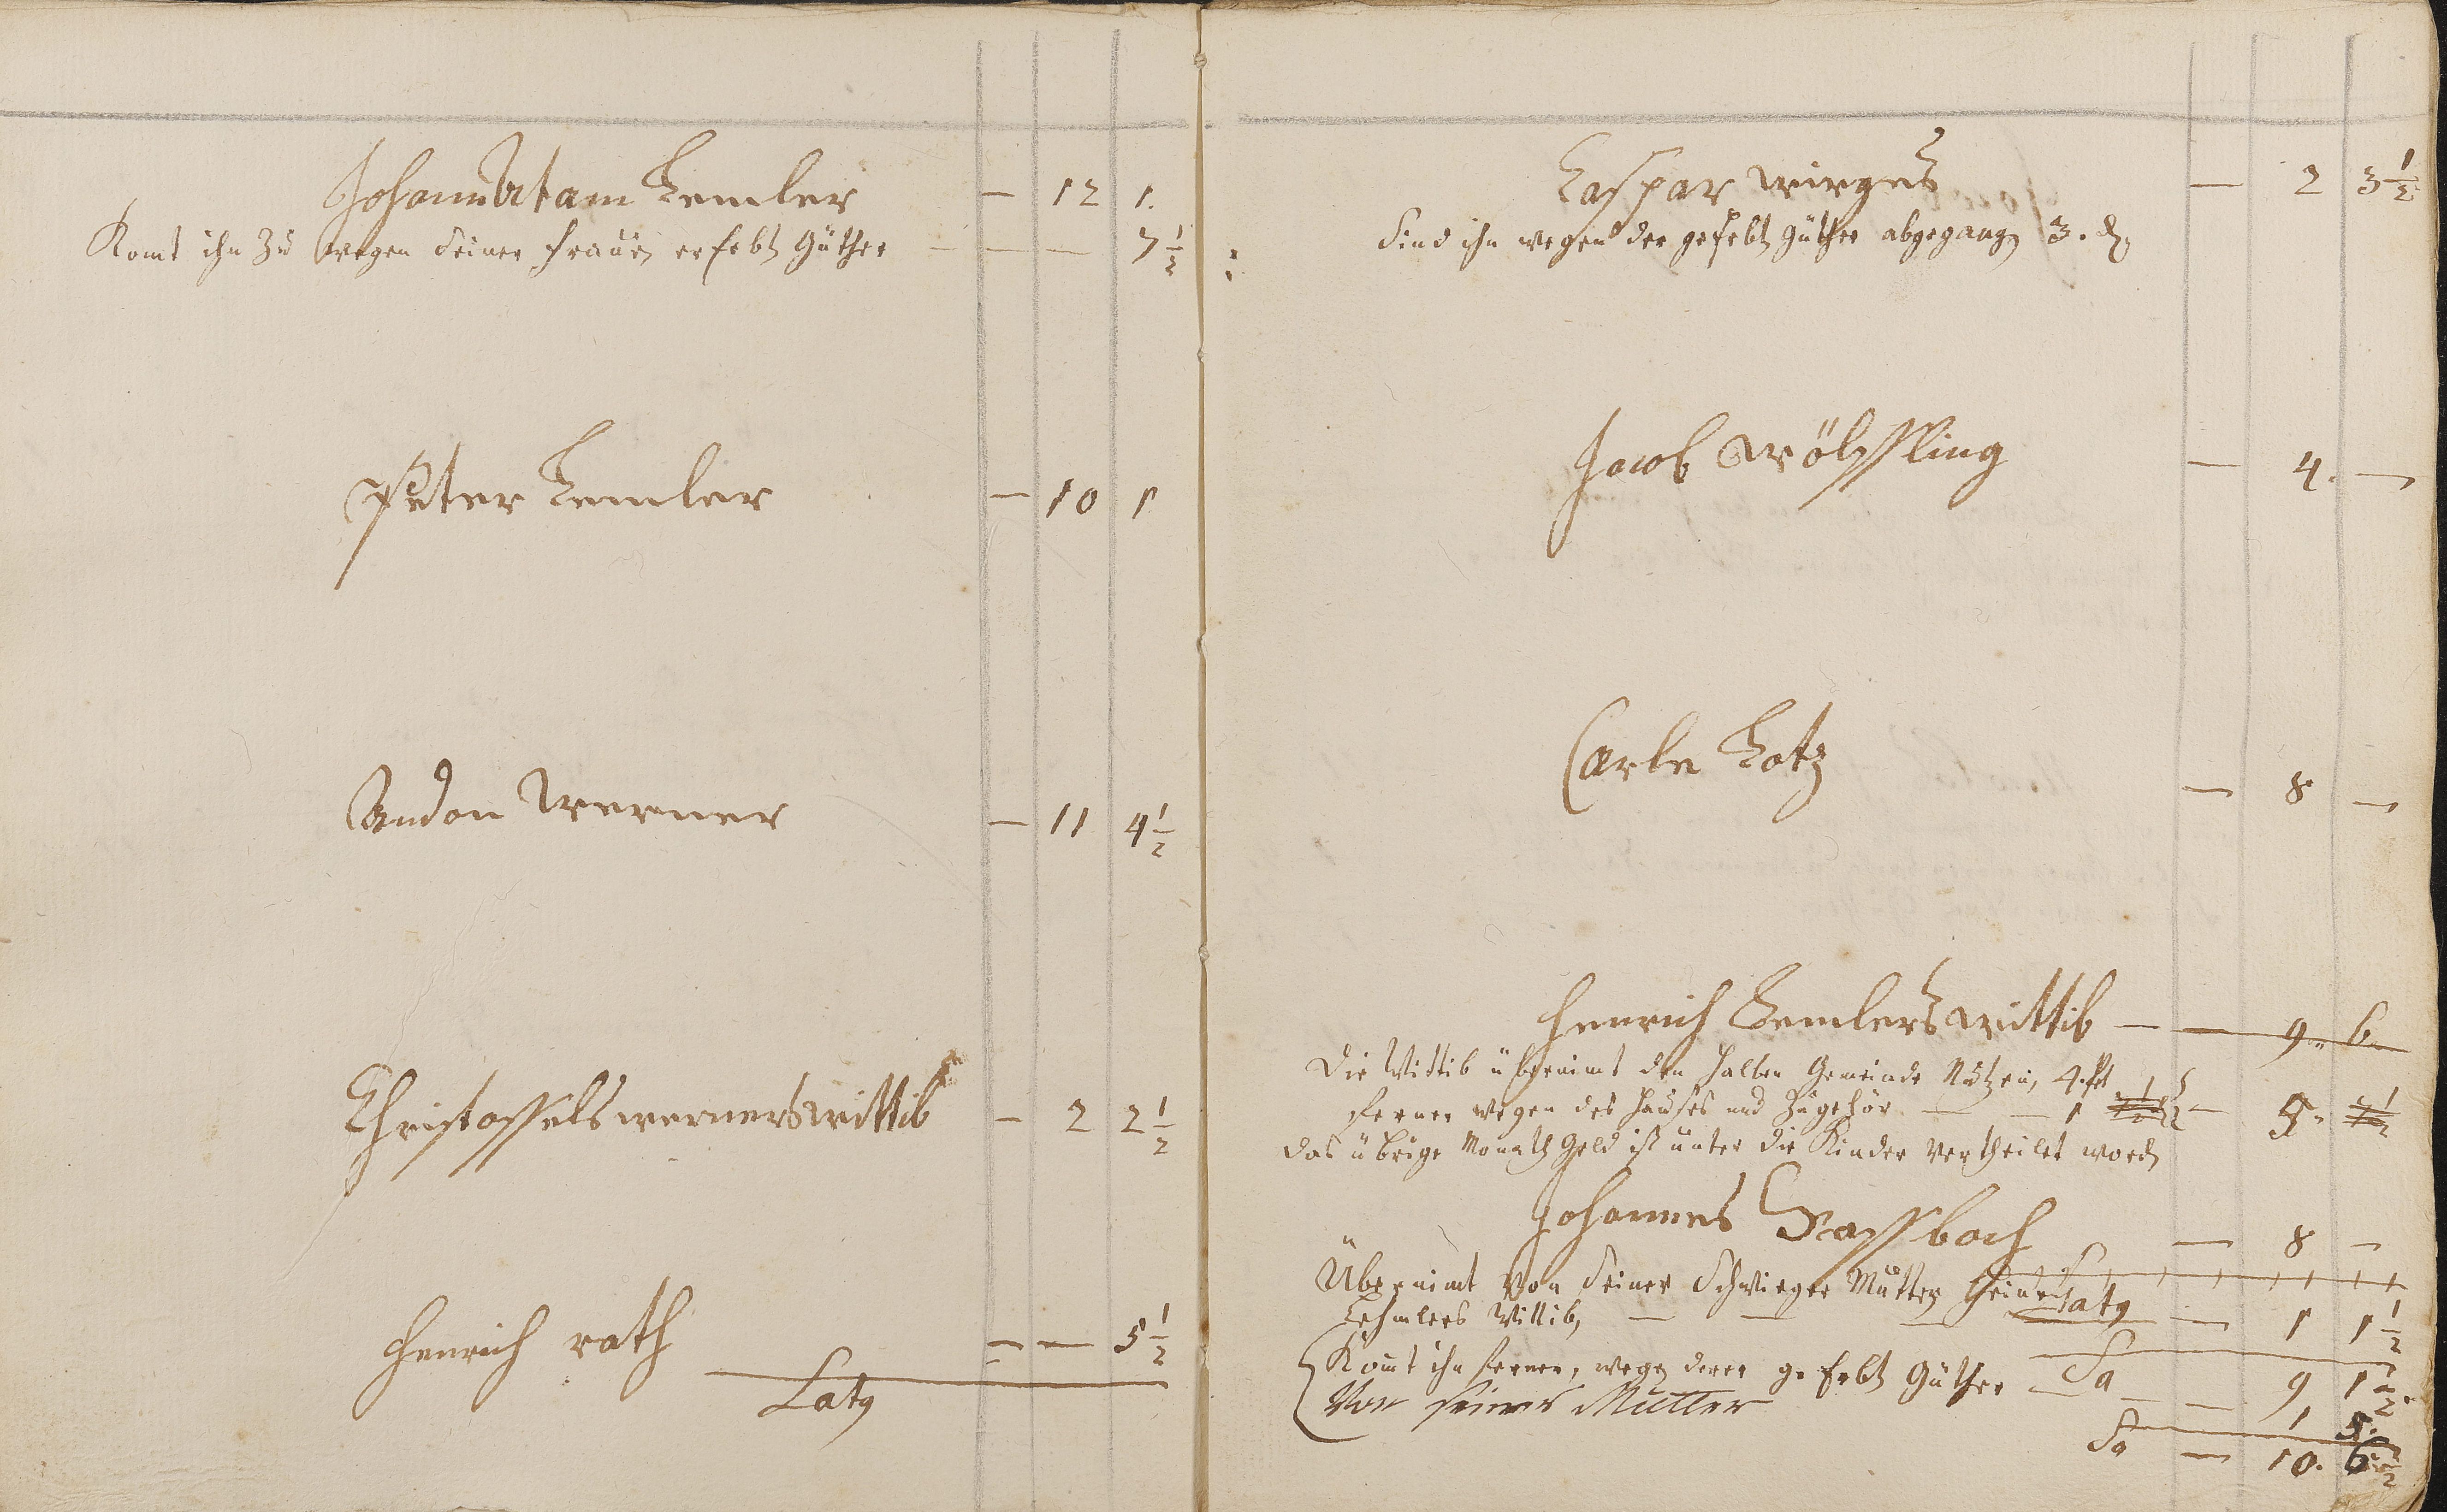 Johann Adam Lemler — 12 1.
Komt ihn zu wegen seiner frauen ererbt Güther — — — 7 1/2
Peter Lemler — 10 1
Andon Werner — 11 4 1/2
Christoffels werners wittib — 2 2 1/2
Henrich rath — — 5 1/2
Latg
Caspar wirges — 2 3 1/2
Sind ihn wegen der geerbt güther abgegang 3. d
Jacob Wölffling — 4. —
Carle Lotz — 8 —
Henrich Lemlers wittib — — 9 6
Die Wittib übernimt den halben Gemeinde Nutzen, 4.
ferner wegen des Hauses und Zugehör — — 1 — 5.
das übrige Monath Geld ist unter die Kinder vertheilet word
Johannes Grassbach — 8 —
Übernimt von seiner Schwieger Mutter Heinrich
Latg
Lehmlers Wittib, — — — — 1 1 1/2
Sa — 9 1 1/2.
Komt ihn ferner, wegen derer geerbt Güther
Von seiner Mutter 1 5.
Sa — 10. 6 1/2